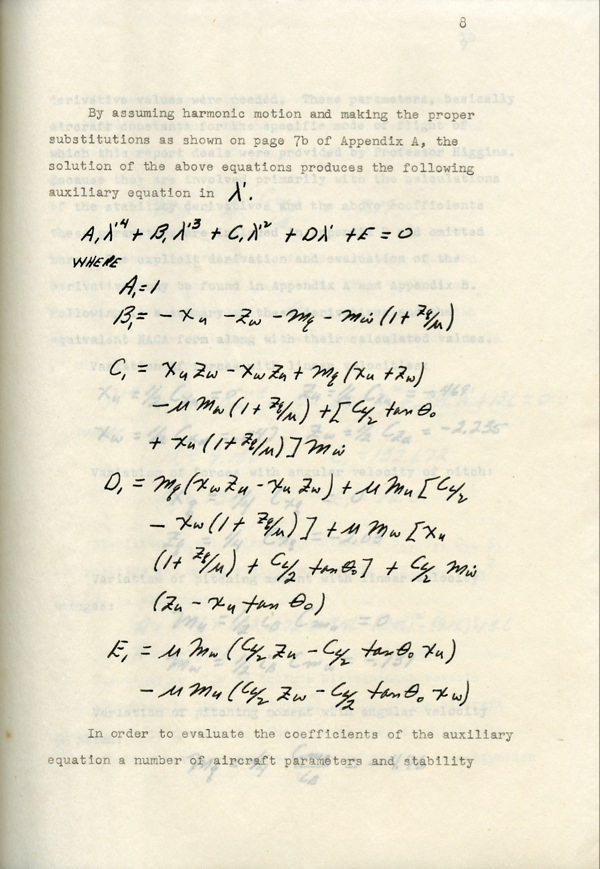 8
By assuming harmonic motion and making the proper
substitutions as shown on page 7b of Appendix A, the
solution of the above equations produces the following
auxiliary equation in λ'.
A₁λ'⁴ + B₁λ'³ + C₁λ'² + Dλ' + E = 0
WHERE
A₁ = 1
B₁ = - xᵤ - z_w - m_q - m_ẇ (1 + z_q/μ)
C₁ = xᵤ z_w - x_w zᵤ + m_q (xᵤ + z_w)
- μ m_w (1 + z_q/μ) + [C_L/2 tan θ₀
+ xᵤ (1 + z_q/μ)] m_ẇ
D₁ = m_q (x_w zᵤ - xᵤ z_w) + μ mᵤ [C_L/2
- x_w (1 + z_q/μ)] + μ m_w [xᵤ
(1 + z_q/μ) + C_L/2 tan θ₀] + C_L/2 m_ẇ
(zᵤ - xᵤ tan θ₀)
E₁ = μ m_w (C_L/2 zᵤ - C_L/2 tan θ₀ xᵤ)
- μ mᵤ (C_L/2 z_w - C_L/2 tan θ₀ x_w)
In order to evaluate the coefficients of the auxiliary
equation a number of aircraft parameters and stability